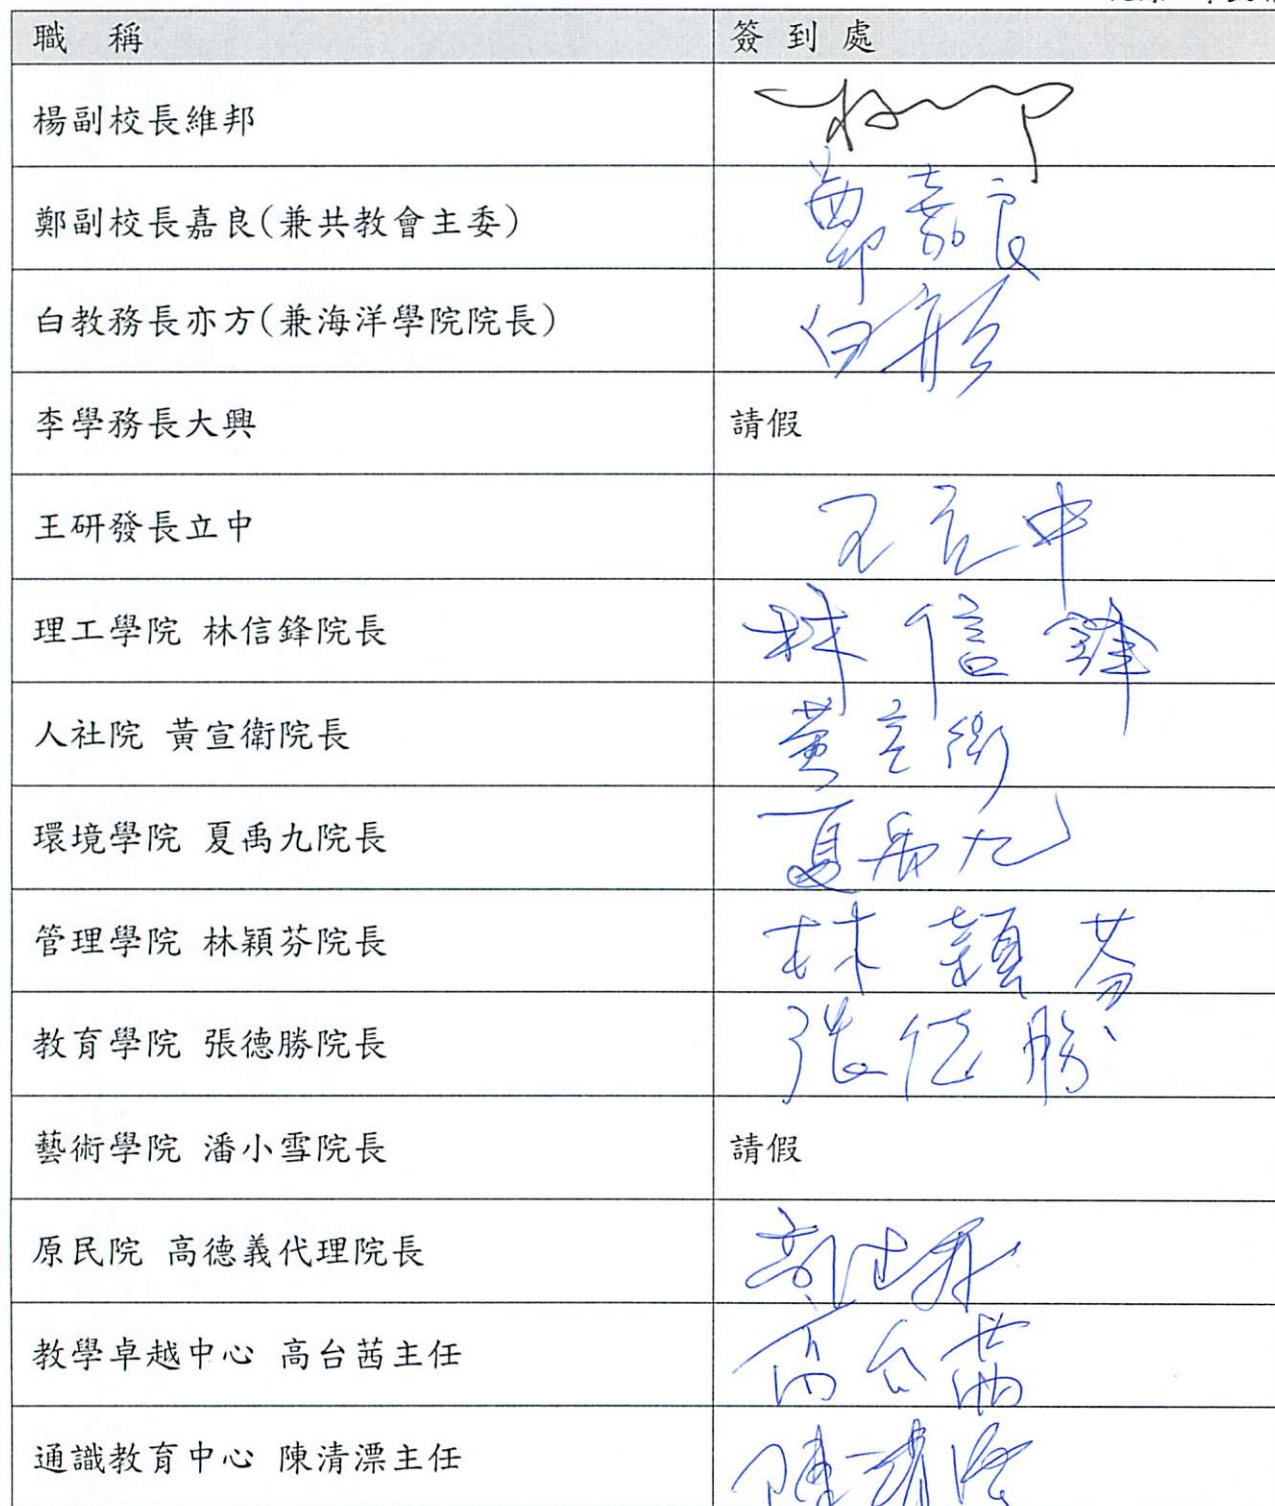 職 稱 簽 到 處
楊副校長維邦
鄭副校長嘉良(兼共教會主委) 鄭嘉良
白教務長亦方(兼海洋學院院長) 白
李學務長大興 請假
王研發長立中 王立中
理工學院 林信鋒院長 林信鋒
人社院 黃宣衛院長 黃宣衛
環境學院 夏禹九院長 夏禹九
管理學院 林穎芬院長 林穎芬
教育學院 張德勝院長 張德勝
藝術學院 潘小雪院長 請假
原民院 高德義代理院長
教學卓越中心 高台茜主任 高台茜
通識教育中心 陳清漂主任 陳清漂